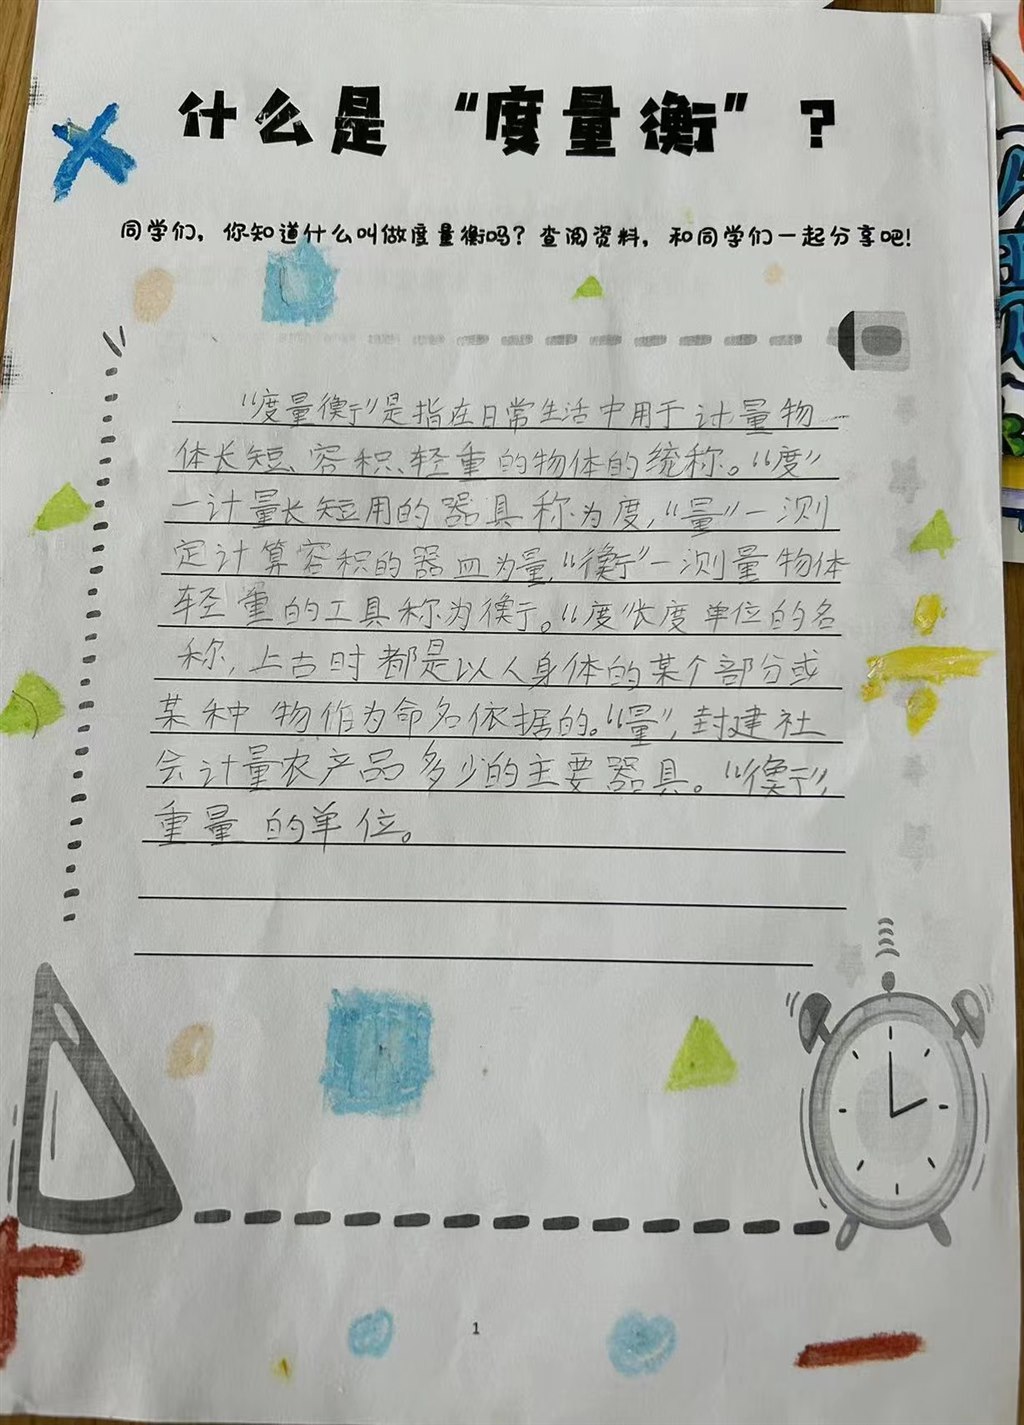 什么是“度量衡”？
同学们，你知道什么叫做度量衡吗？查阅资料，和同学们一起分享吧！
“度量衡”是指在日常生活中用于计量物
体长短、容积、轻重的物体的统称。“度”
一计量长短用的器具称为度，“量”一测
定计算容积的器皿为量，“衡”一测量物体
轻重的工具称为衡。“度”长度单位的名
称，上古时都是以人身体的某个部分或
某种物作为命名依据的。“量”，封建社
会计量农产品多少的主要器具。“衡”，
重量的单位。
1